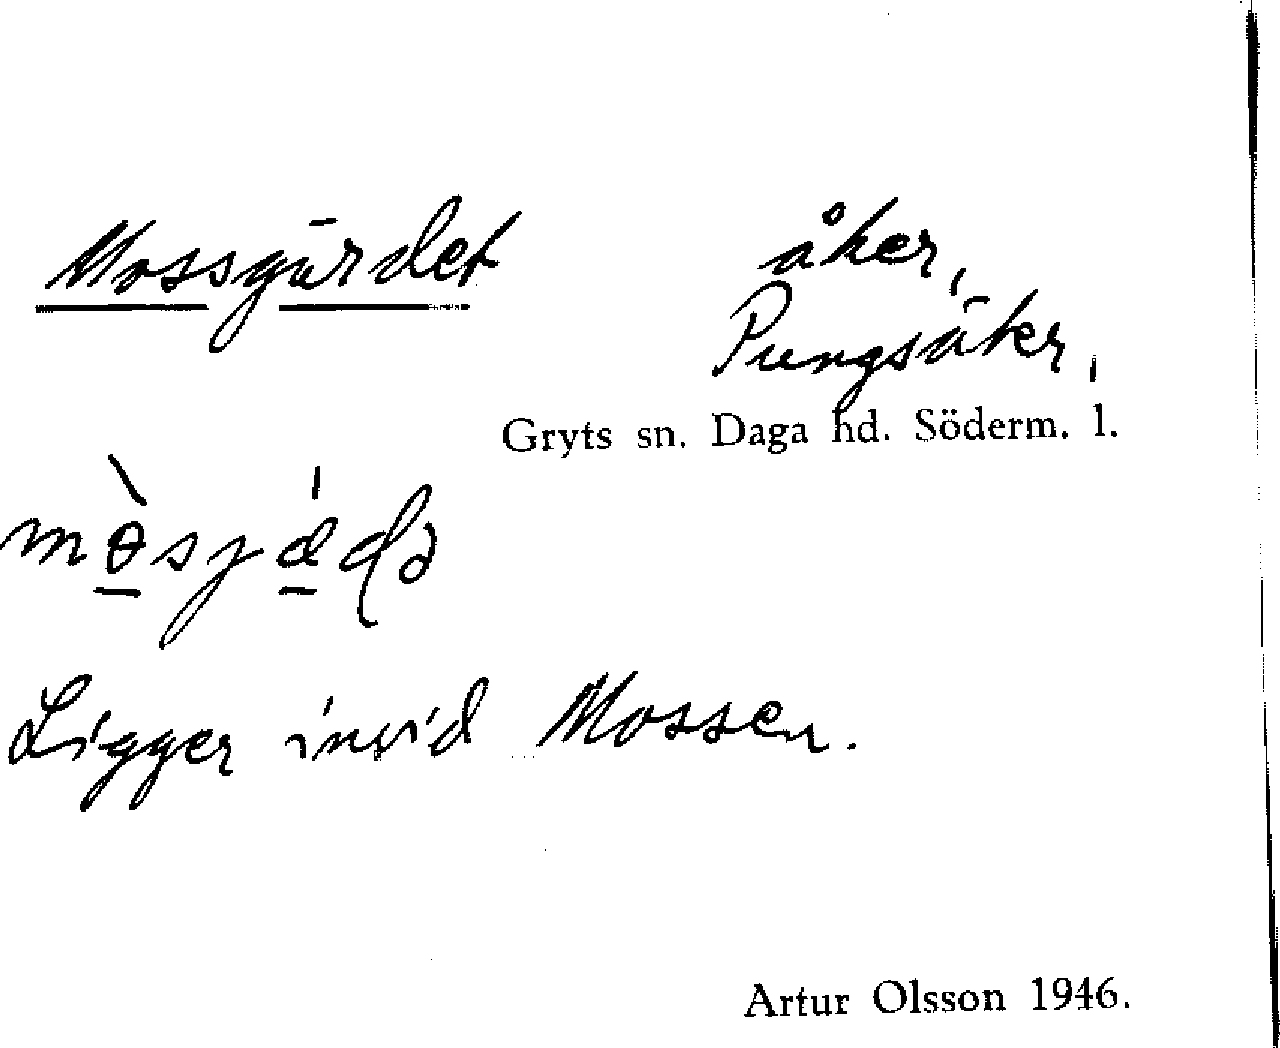 Mossgärdet åker,
Pungsåker,
Gryts sn. Daga hd. Söderm. l.
Ligger invid Mossen.
Artur Olsson 1946.